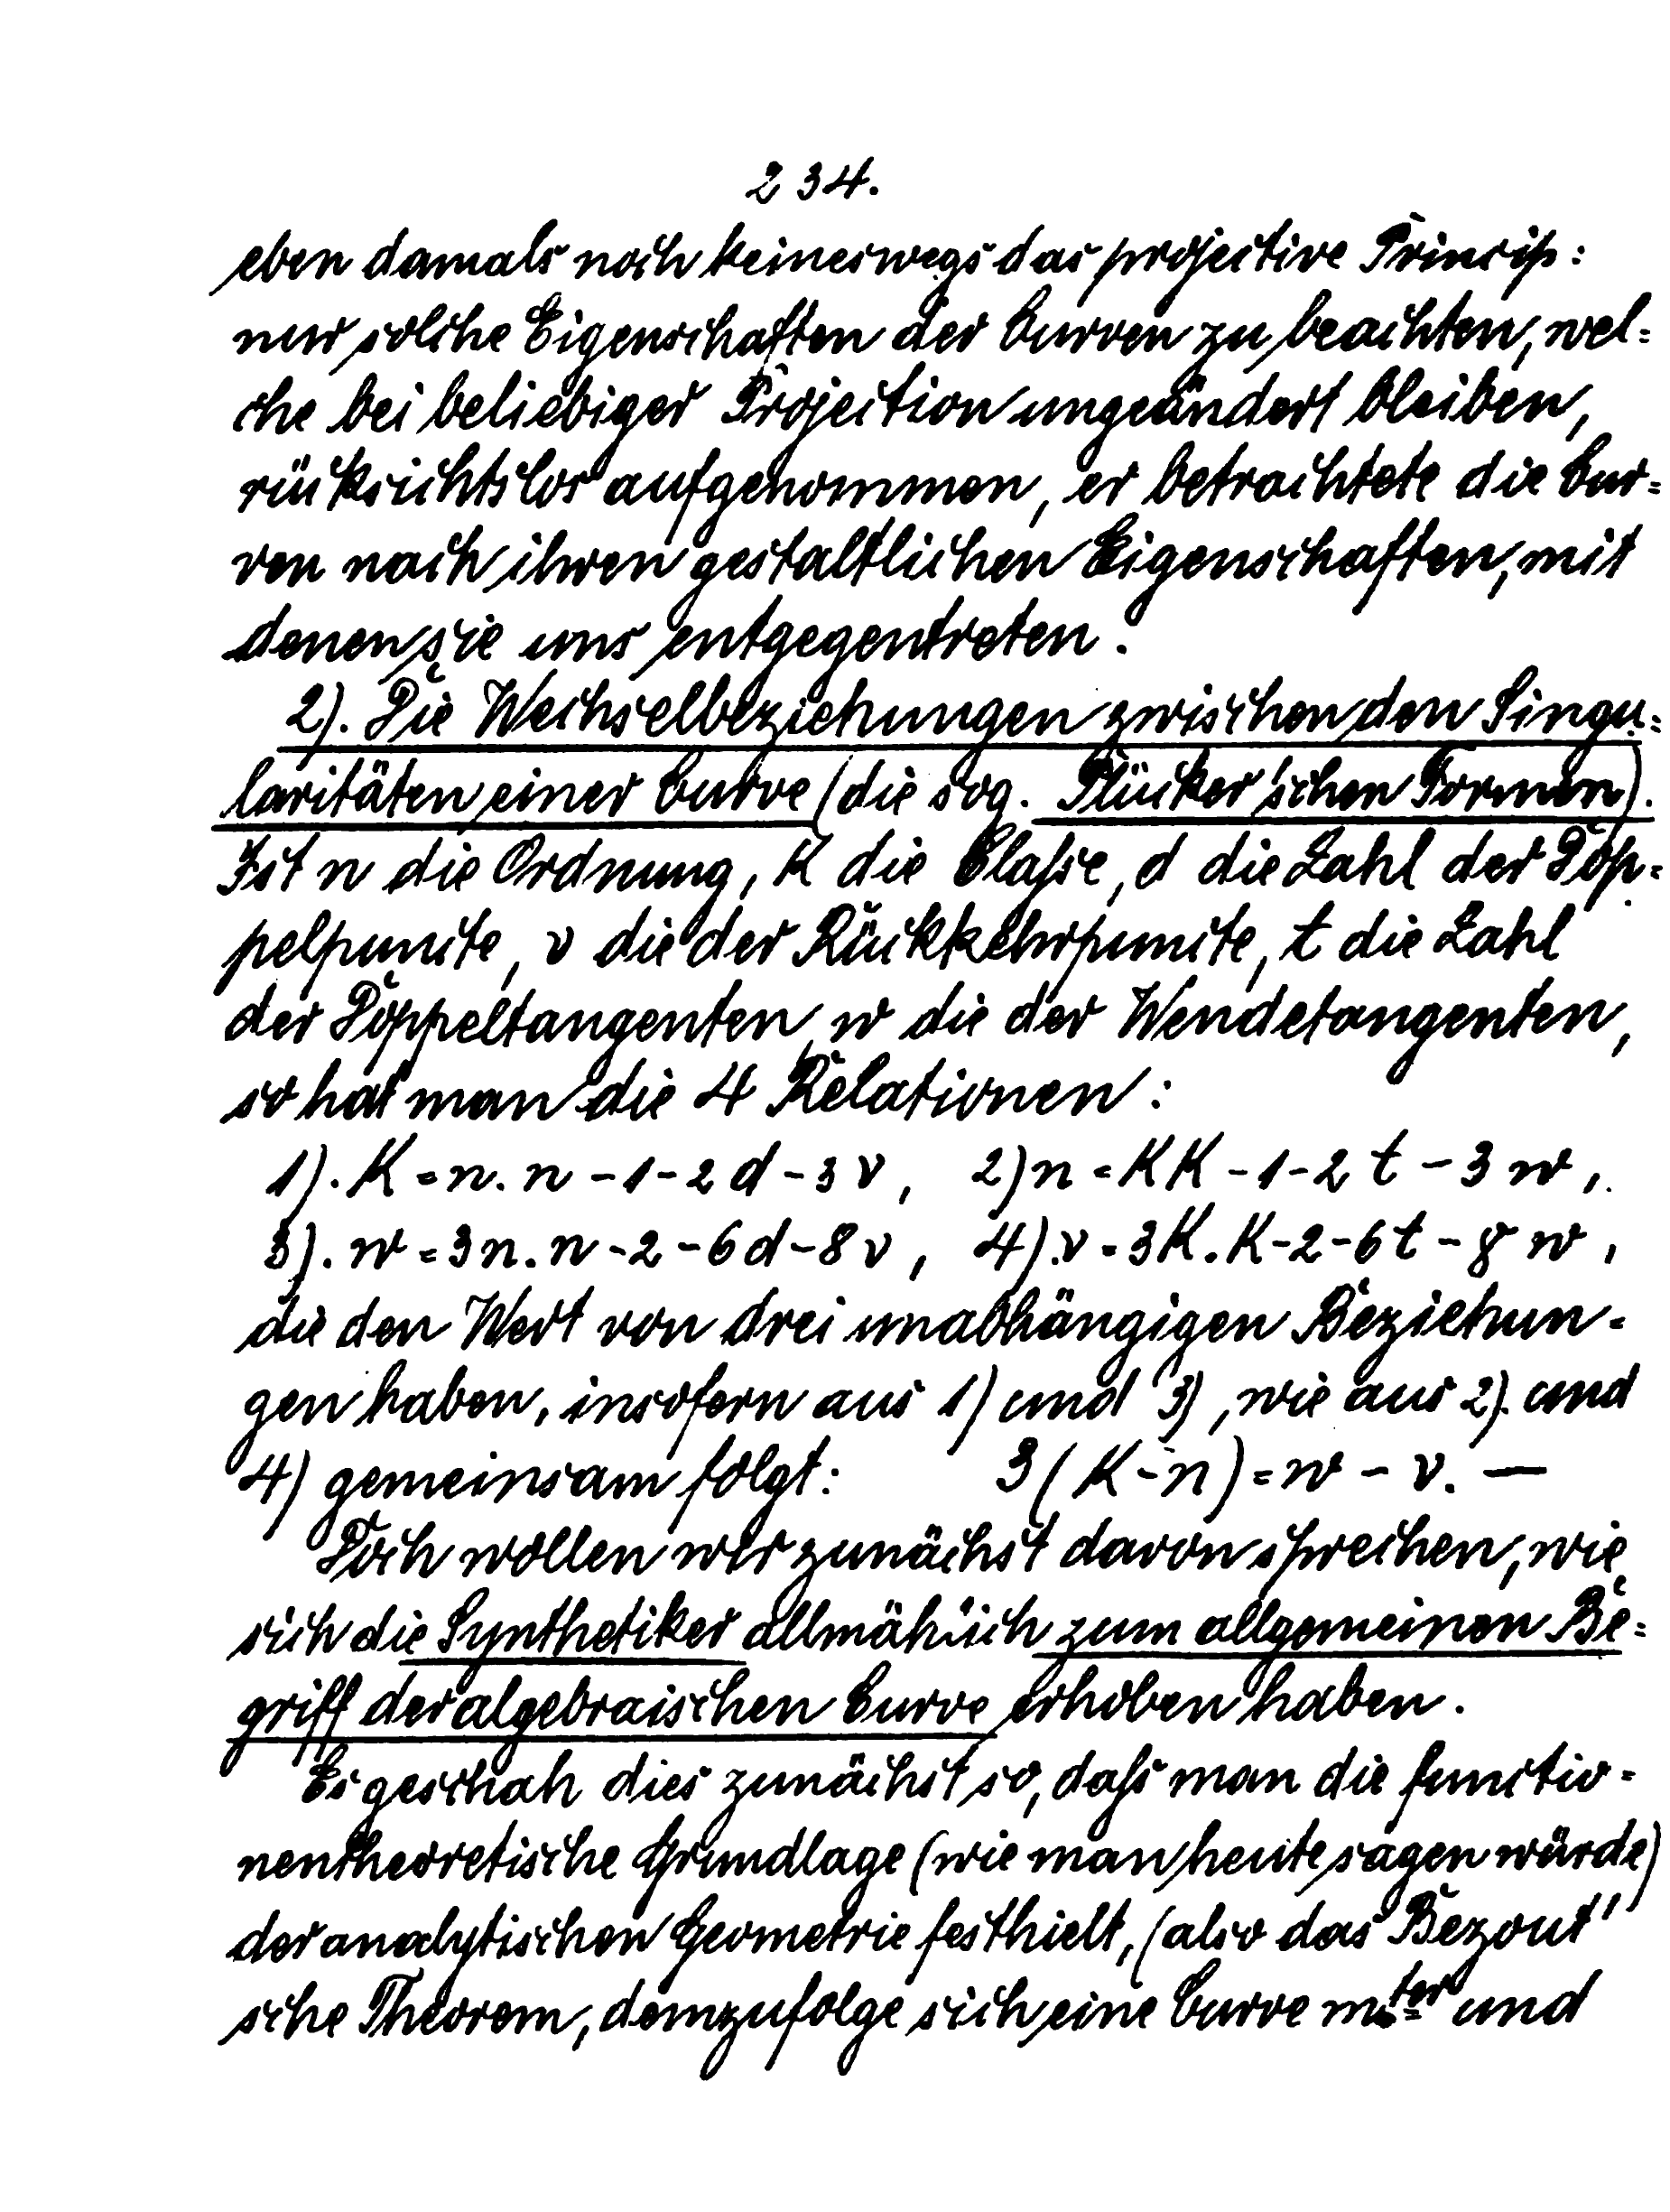 234.
eben damals noch keineswegs das projective Princip:
nur solche Eigenschaften der Curven zu beachten, wel-
che bei beliebiger Projection ungeändert bleiben,
rücksichtslos aufgenommen, er betrachtete die Cur-
ven nach ihren gestaltlichen Eigenschaften, mit
denen sie uns entgegentreten.
2). Die Wechselbeziehungen zwischen den Singu-
laritäten einer Curve (die sog. Plücker'schen Formen).
Ist n die Ordnung, K die Classe, d die Zahl der Dop-
pelpuncte, v die der Rückkehrpuncte, t die Zahl
der Doppeltangenten, w die der Wendetangenten,
so hat man die 4 Relationen:
1). K = n. n - 1 - 2 d - 3 v, 2) n = K K - 1 - 2 t - 3 w,
3). w = 3 n. n - 2 - 6 d - 8 v, 4). v = 3 K. K - 2 - 6 t - 8 w,
die den Wert von drei unabhängigen Beziehun-
gen haben, insofern aus 1) und 3), wie aus 2). und
4) gemeinsam folgt: 3 (K - n) = w - v. —
Doch wollen wir zunächst davon sprechen, wie
sich die Synthetiker allmählich zum allgemeinen Be-
griff der algebraischen Curve erhoben haben.
Es geschah dies zunächst so, dass man die functio-
nentheoretische Grundlage (wie man heute sagen würde)
der analytischen Geometrie festhielt, (also das Bezout'
sche Theorem, demzufolge sich eine Curve m.ter und